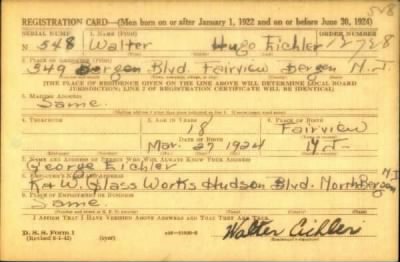 518
REGISTRATION CARD—(Men born on or after January 1, 1922 and on or before June 30, 1924)
SERIAL NUMBER 1. NAME (Print) ORDER NUMBER
N 548 Walter Hugo Eichler 12728
2. PLACE OF RESIDENCE (Print)
349 Bergen Blvd. Fairview Bergen N.J.
(THE PLACE OF RESIDENCE GIVEN ON THE LINE ABOVE WILL DETERMINE LOCAL BOARD
JURISDICTION; LINE 2 OF REGISTRATION CERTIFICATE WILL BE IDENTICAL)
3. MAILING ADDRESS
Same.
4. TELEPHONE 5. AGE IN YEARS 6. PLACE OF BIRTH
18 Fairview
DATE OF BIRTH
Mar. 27 1924 N.J.
7. NAME AND ADDRESS OF PERSON WHO WILL ALWAYS KNOW YOUR ADDRESS
George Eichler
8. EMPLOYER'S NAME AND ADDRESS
K+W. Glass Works Hudson Blvd. North Bergen N.J.
9. PLACE OF EMPLOYMENT OR BUSINESS
Same
I AFFIRM THAT I HAVE VERIFIED ABOVE ANSWERS AND THAT THEY ARE TRUE.
D. S. S. Form 1
(Revised 6-1-42) (over)
Walter Eichler